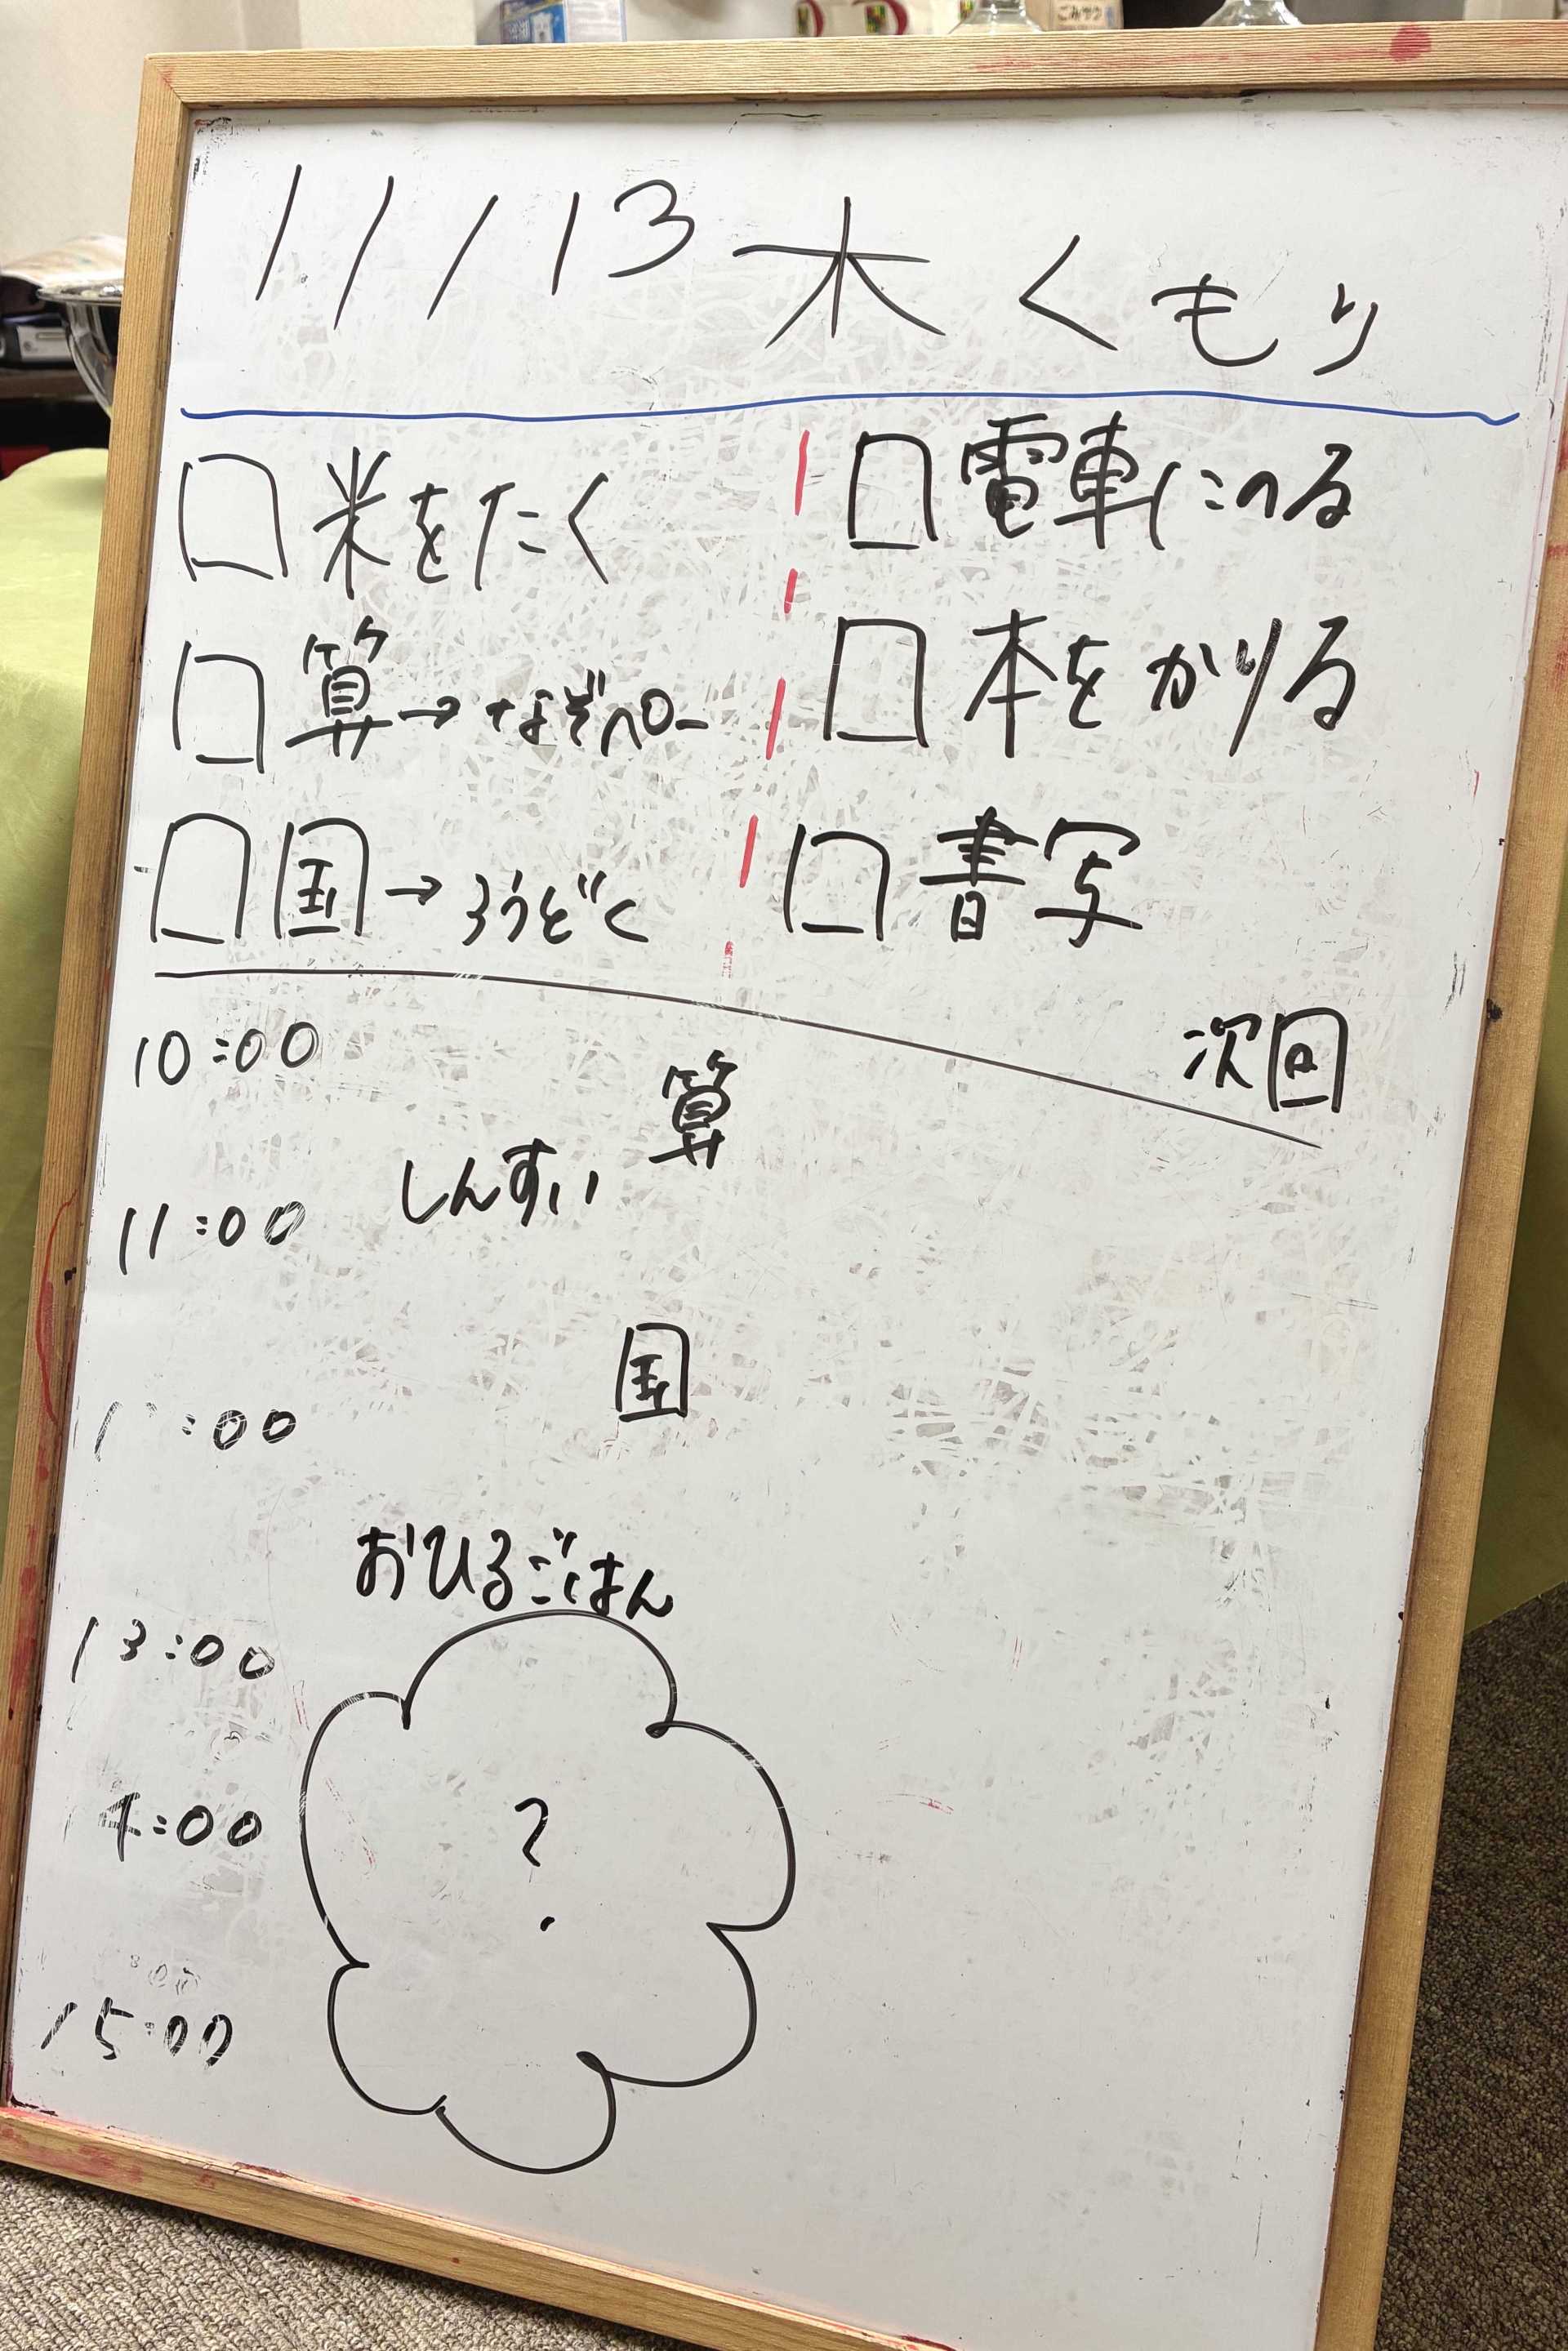 11/13 木 くもり
□ 米をたく
□ 算→なぞペー
□ 国→ろうどく
□ 電車にのる
□ 本をかりる
□ 書写
次回
10:00
算
しんすい
11:00
国
:00
おひるごはん
13:00
14:00
?
15:00